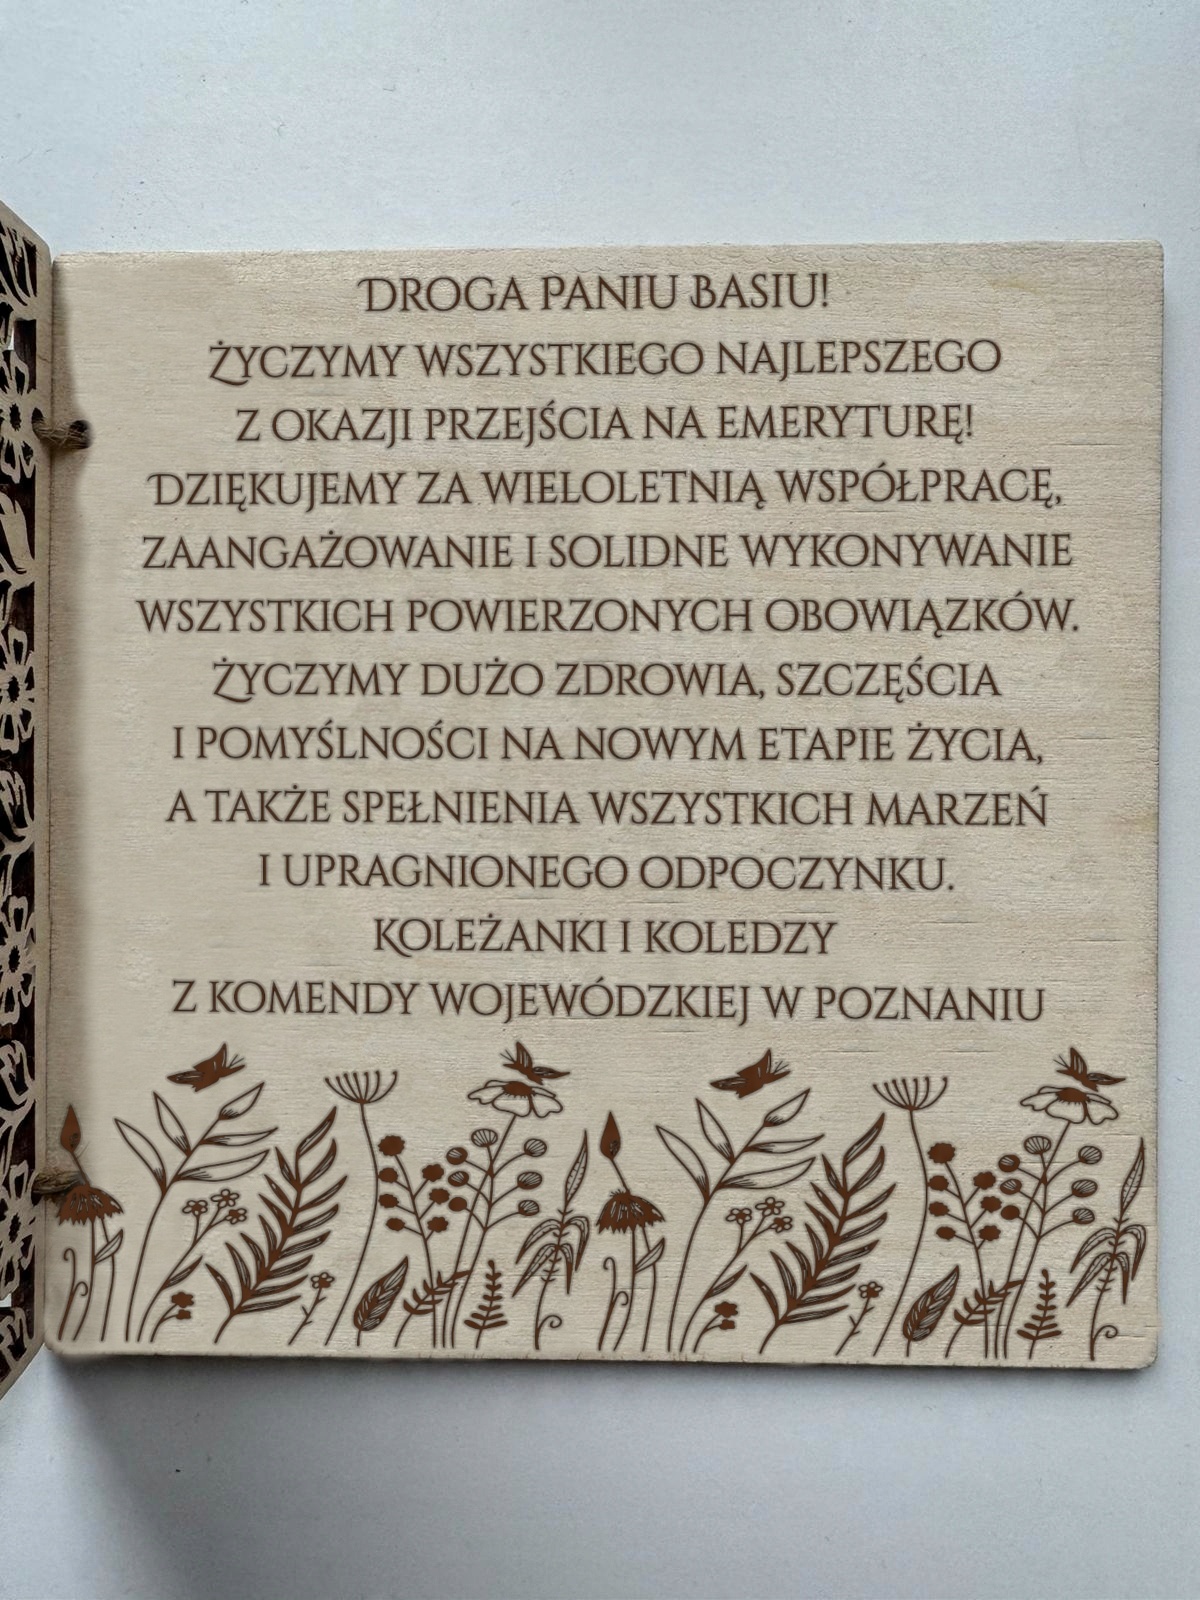 DROGA PANIU BASIU!
ŻYCZYMY WSZYSTKIEGO NAJLEPSZEGO
Z OKAZJI PRZEJŚCIA NA EMERYTURĘ!
DZIĘKUJEMY ZA WIELOLETNIĄ WSPÓŁPRACĘ,
ZAANGAŻOWANIE I SOLIDNE WYKONYWANIE
WSZYSTKICH POWIERZONYCH OBOWIĄZKÓW.
ŻYCZYMY DUŻO ZDROWIA, SZCZĘŚCIA
I POMYŚLNOŚCI NA NOWYM ETAPIE ŻYCIA,
A TAKŻE SPEŁNIENIA WSZYSTKICH MARZEŃ
I UPRAGNIONEGO ODPOCZYNKU.
KOLEŻANKI I KOLEDZY
Z KOMENDY WOJEWÓDZKIEJ W POZNANIU